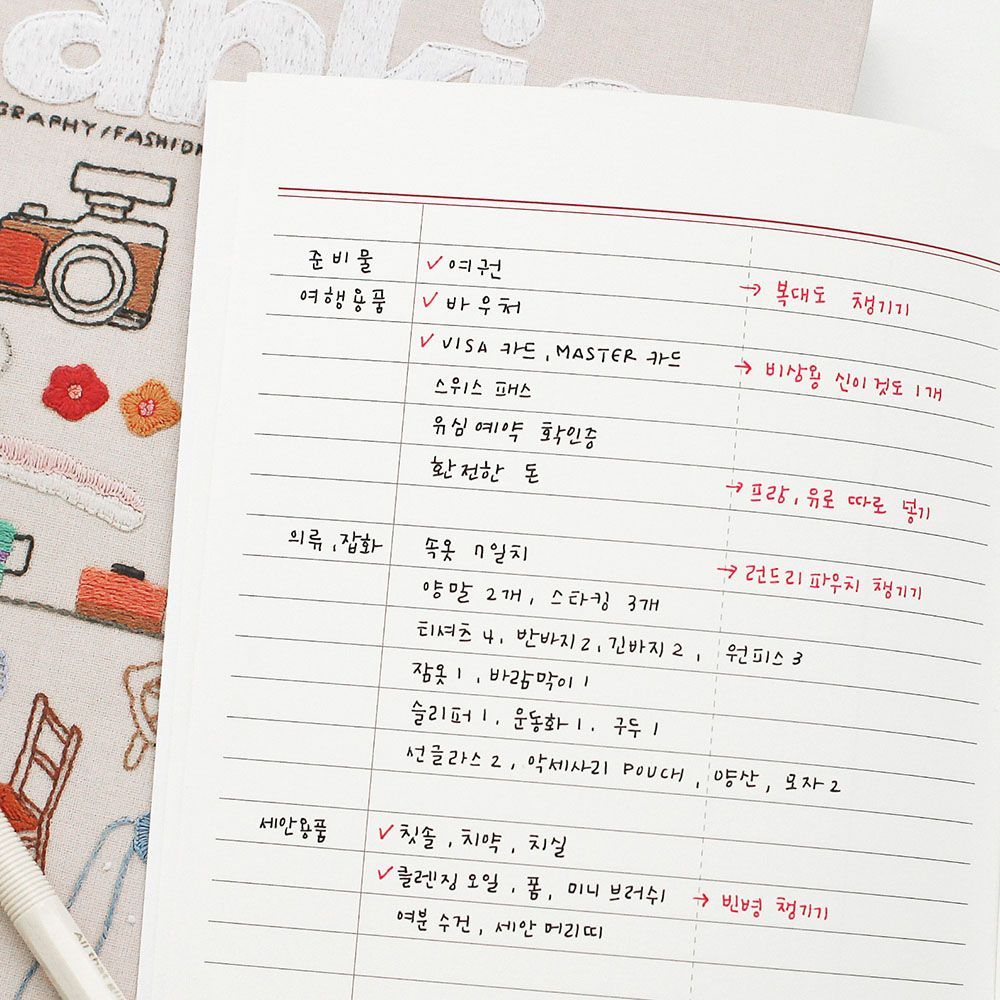 anki
GRAPHY/FASHION
준비물 ✓ 여권
→ 복대도 챙기기
여행용품 ✓ 바우처
✓ VISA 카드, MASTER 카드
→ 비상용 신이것도 1개
스위스 패스
유심예약 확인증
환전한 돈
→ 프랑, 유로 따로 넣기
의류, 잡화 속옷 7일치
→ 런드리파우치 챙기기
양말 2개, 스타킹 3개
티셔츠 4, 반바지 2, 긴바지 2, 원피스 3
잠옷 1, 바람막이 1
슬리퍼 1, 운동화 1, 구두 1
선글라스 2, 악세사리 POUCH, 양산, 모자 2
세안용품 ✓ 칫솔, 치약, 치실
✓ 클렌징 오일, 폼, 미니 브러쉬
→ 빈병 챙기기
여분 수건, 세안 머리띠
All that